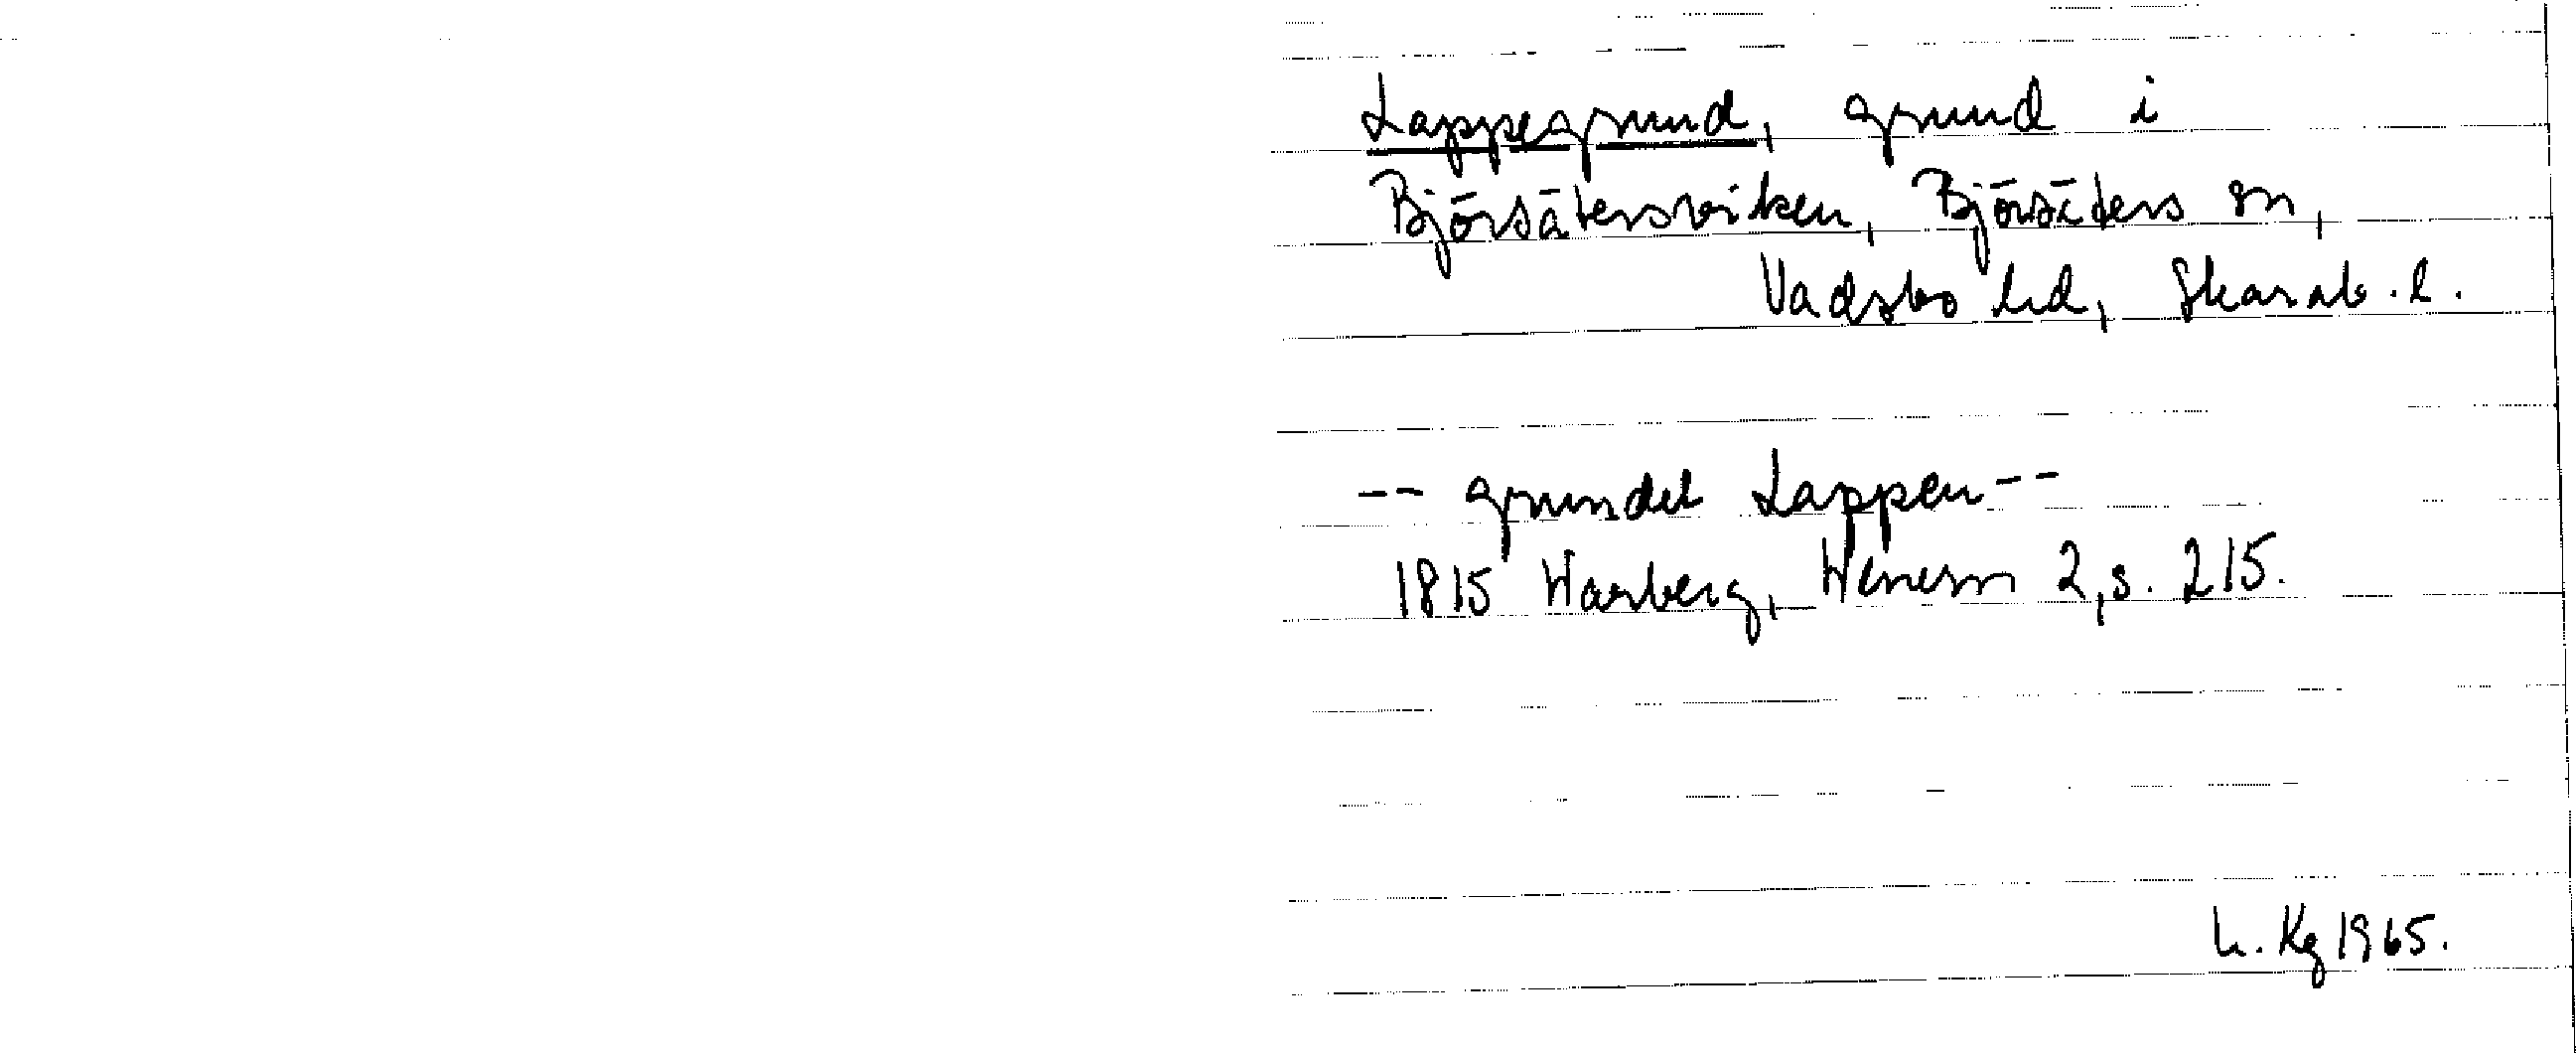 Lappegrund, grund i
Björsätersviken, Björsäters sn,
Vadsbo hd, Skarab. l.
-- grundet Lappen --
1815 Warberg, Wenern 2, s. 215.
h. Kg 1965.